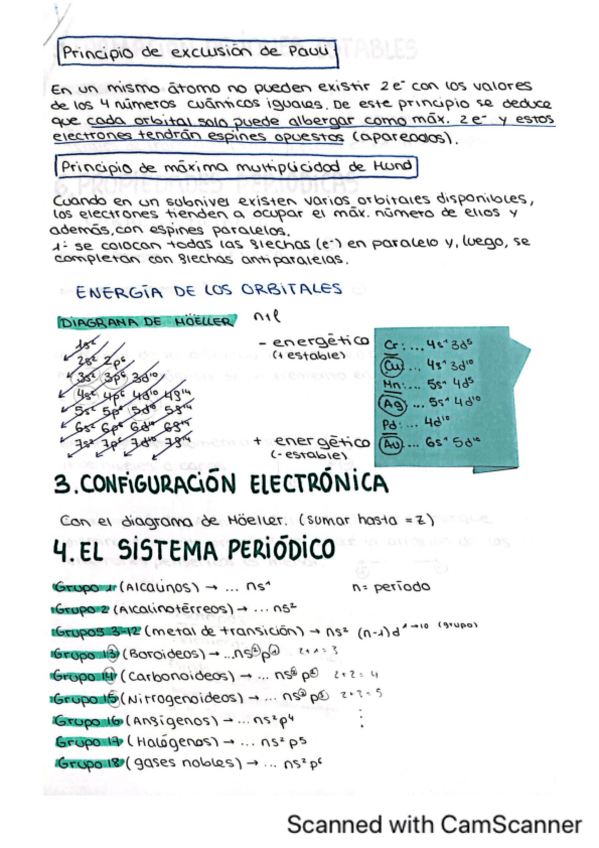 Principio de exclusión de Pauli
En un mismo átomo no pueden existir 2e⁻ con los valores
de los 4 números cuánticos iguales. De este principio se deduce
que cada orbital solo puede albergar como máx. 2e⁻ y estos
electrones tendrán espines opuestos (apareados).
Principio de máxima multiplicidad de Hund
Cuando en un subnivel existen varios orbitales disponibles,
los electrones tienden a ocupar el máx. número de ellos y
además, con espines paralelos.
1º se colocan todas las flechas (e⁻) en paralelo y, luego, se
completan con flechas antiparalelas.
ENERGÍA DE LOS ORBITALES
DIAGRAMA DE MÖELLER n+l
1s²
2s² 2p⁶
3s² 3p⁶ 3d¹⁰
4s² 4p⁶ 4d¹⁰ 4f¹⁴
5s² 5p⁶ 5d¹⁰ 5f¹⁴
6s² 6p⁶ 6d¹⁰ 6f¹⁴
7s² 7p⁶ 7d¹⁰ 7f¹⁴
- energético
(+ estable)
+ energético
(- estable)
Cr: ... 4s¹ 3d⁵
Cu ... 4s¹ 3d¹⁰
Mn: ... 5s¹ 4d⁵
Ag ... 5s¹ 4d¹⁰
Pd: ... 4d¹⁰
Au ... 6s¹ 5d¹⁰
3. CONFIGURACIÓN ELECTRÓNICA
Con el diagrama de Möeller. (sumar hasta = Z)
4. EL SISTEMA PERIÓDICO
Grupo 1 (Alcalinos) → ... ns¹ n = período
Grupo 2 (Alcalinotérreos) → ... ns²
Grupos 3-12 (metal de transición) → ns² (n-1)d¹→¹⁰ (grupo)
Grupo 13 (Boroideos) → ... ns²p¹ 2+1=3
Grupo 14 (Carbonoideos) → ... ns²p² 2+2=4
Grupo 15 (Nitrogenoideos) → ... ns²p³ 2+3=5
Grupo 16 (Anfígenos) → ... ns²p⁴
Grupo 17 (Halógenos) → ... ns²p⁵
Grupo 18 (gases nobles) → ... ns²p⁶
Scanned with CamScanner